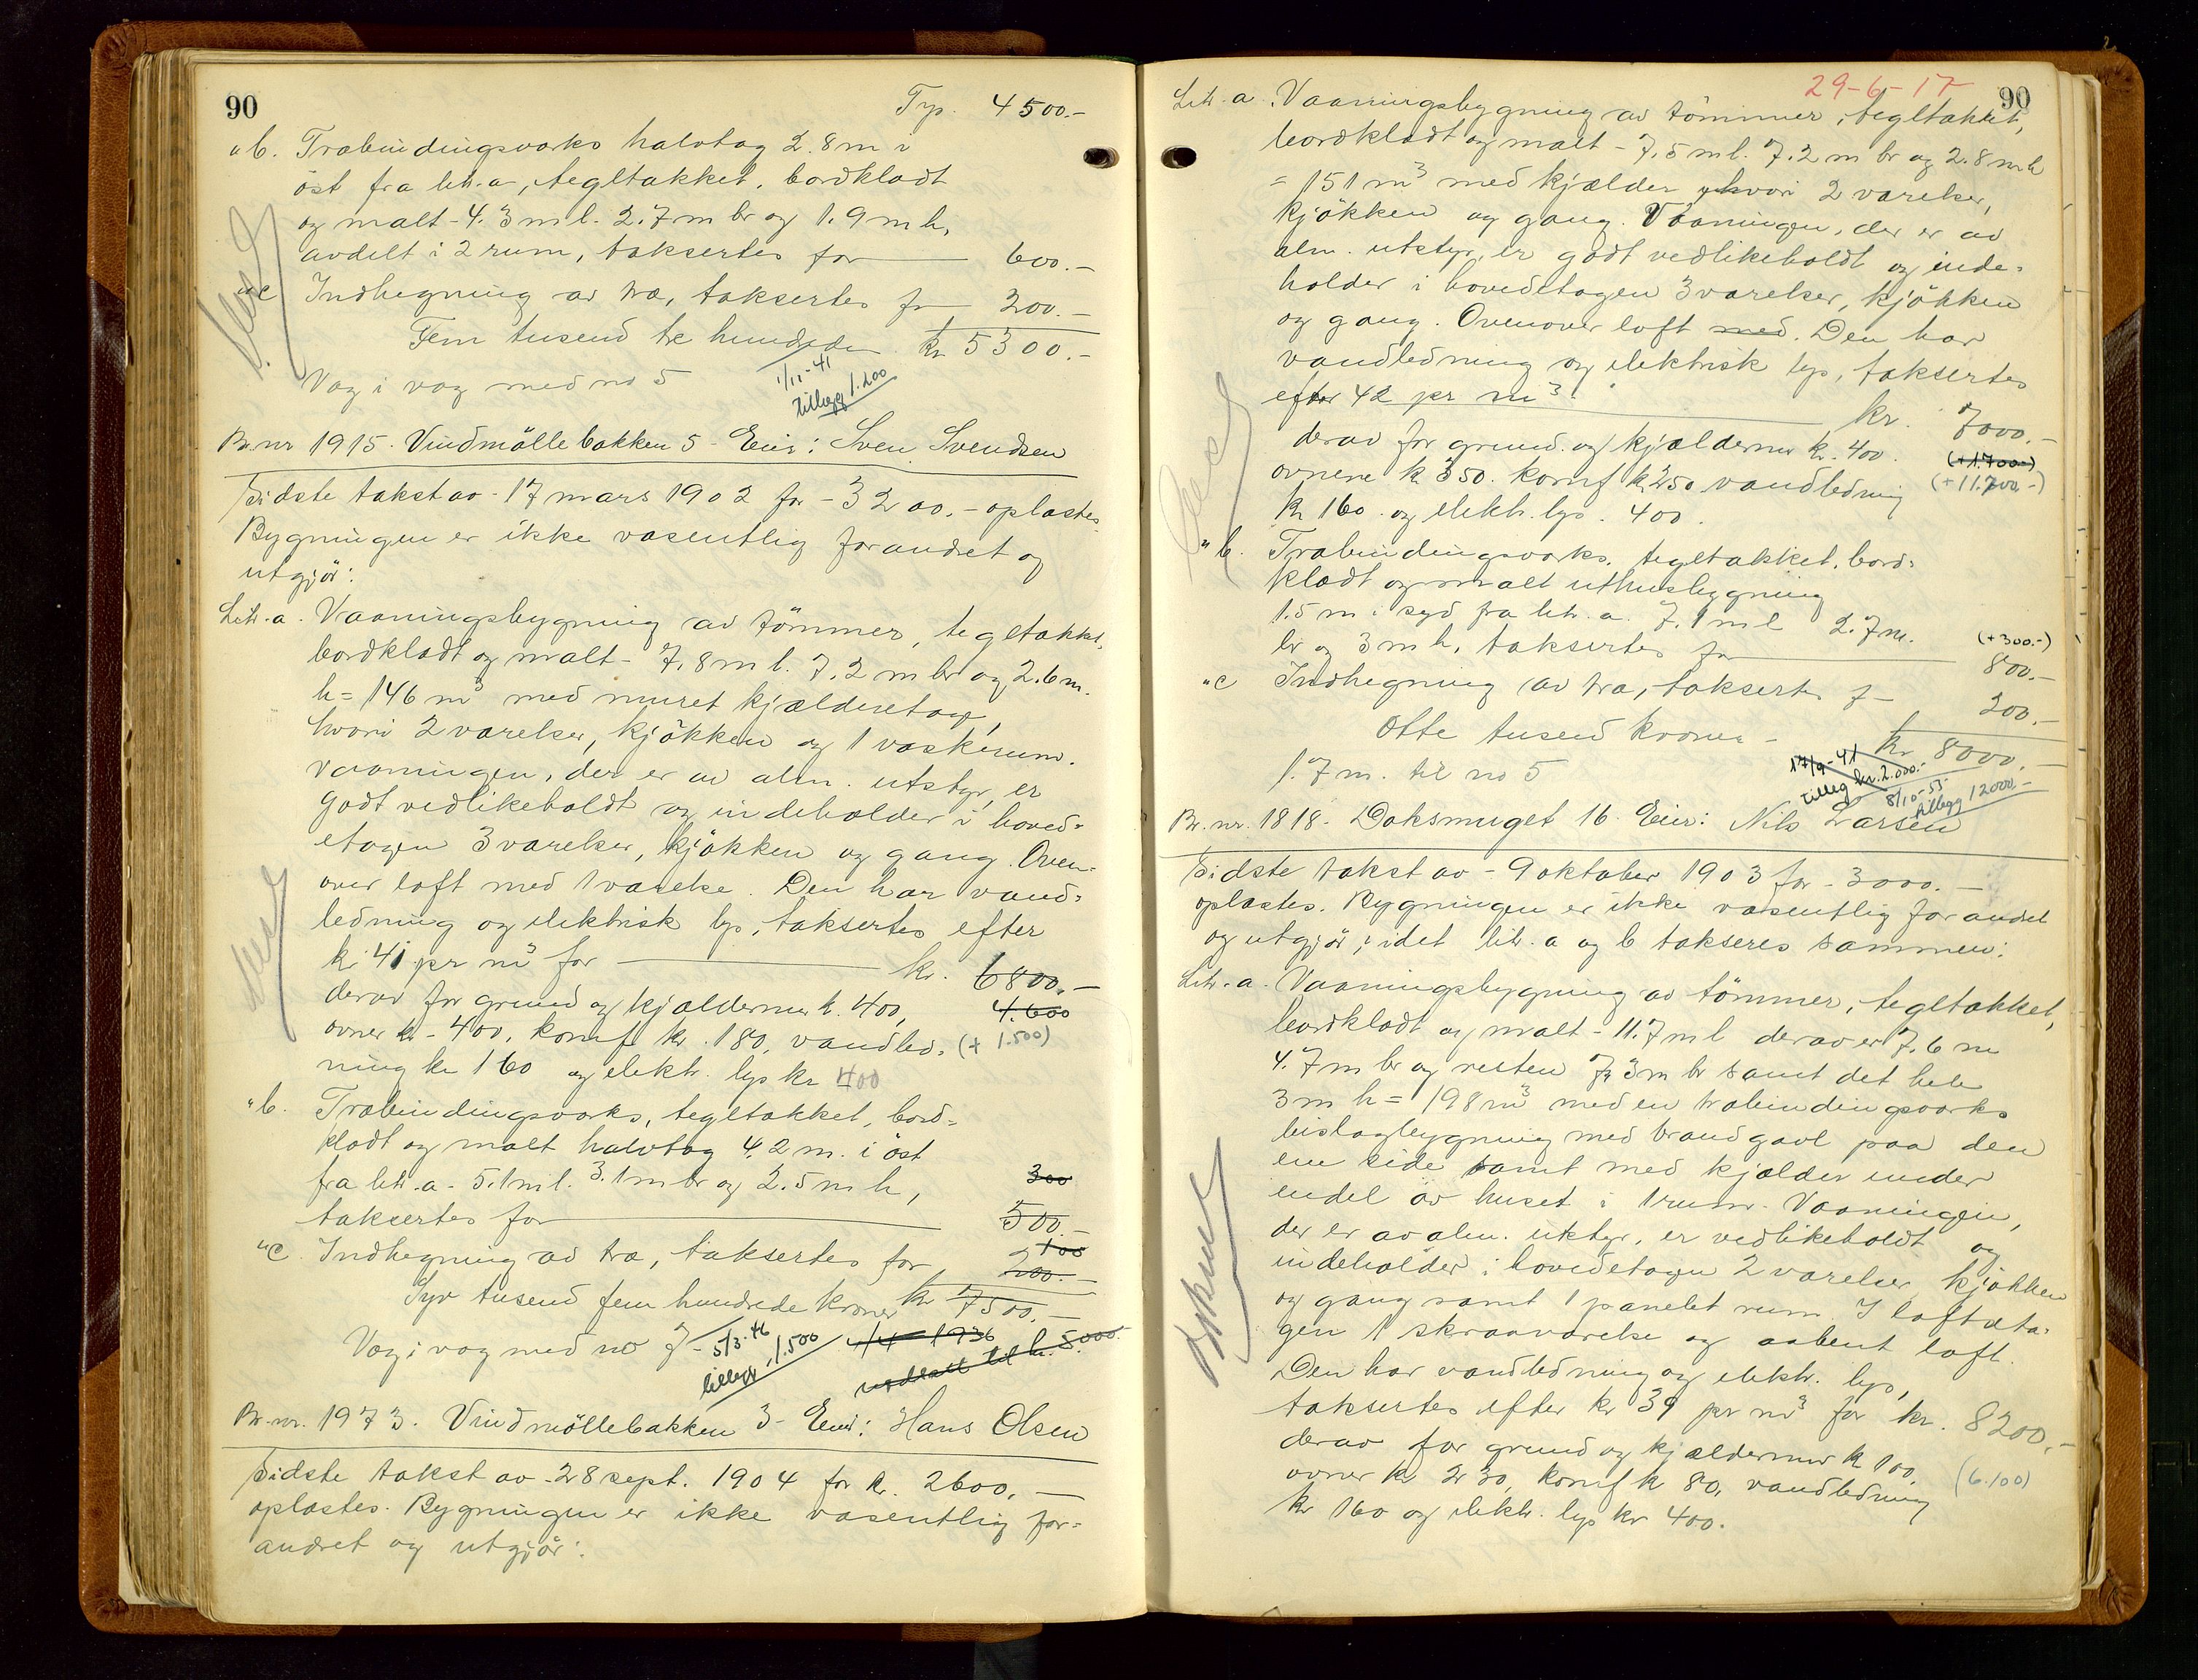 90
Trp. 4500.-
"b. Træbindingsværks halvtag 2.8 m i
øst fra litr. a, tegltakket, bordklædt
og malt - 4.3 m l. 2.7 m br og 1.9 m h,
avdelt i 2 rum, taksertes for 600.-
"c Indhegning av træ, taksertes for 200.-
Fem tusend tre hundrede kr 5300.-
Væg i væg med no 5
1/11-41
tillegg 1.200
Br.nr 1915. Vindmøllebakken 5 - Eier: Sven Svendsen
Sidste takst av - 17 mars 1902 for - 3200.- oplæstes.
Bygningen er ikke væsentlig forandret og
utgjør:
Litr. a. Vaaningsbygning av tømmer, tegltakket,
bordklædt og malt - 7.8 m l. 7.2 m br og 2.6 m.
h = 146 m³ med muret kjælderetage,
hvori 2 værelser, kjøkken og 1 vaskerum.
Vaaningen, der er av alm. utstyr, er
godt vedlikeholdt og indeholder i hoved-
etagen 3 værelser, kjøkken og gang. Oven-
over loft med 1 værelse. Den har vand-
ledning og elektrisk lys, taksertes efter
kr 41 pr m³ for kr. 6800.-
derav for grund og kjældermur k. 400, 4.600
ovner kr - 400, komf kr. 180, vandled- (+ 1.500)
ning kr 160 og elektr. lys kr 400
"b. Træbindingsværks, tegltakket, bord-
klædt og malt halvtag 4.2 m. i øst
fra litr. a - 5.1 m l. 3.1 m br og 2.5 m h, 300
taksertes for 500.-
"c. Indhegning av træ, taksertes for 100
200.-
Syv tusend fem hundrede kroner kr 7500.-
Væg i væg med no 7 - 5/3-46 1/4 1936
tillegg 1.500 nedsatt til kr. 5.000.
Br.nr. 1973. Vindmøllebakken 3 - Eier: Hans Olsen
Sidste takst av - 28 sept. 1904 for kr. 2600.-
oplæstes. Bygningen er ikke væsentlig for-
andret og utgjør:
29-6-17
90
Litr. a. Vaaningsbygning av tømmer, tegltakket,
bordklædt og malt - 7.5 m l. 7.2 m br og 2.8 m h
= 151 m³ med kjælder hvori 2 værelser,
kjøkken og gang. Vaaningen, der er av
alm. utstyr, er godt vedlikeholdt og inde-
holder i hovedetagen 3 værelser, kjøkken
og gang. Ovenover loft med. Den har
vandledning og elektrisk lys, taksertes
efter 42 pr m³ kr. 7000.-
derav for grund og kjældermur k. 400. (+1.700-)
ovnene k 350. komf k 250 vandledning (+11.700-)
kr 160. og elektr. lys. 400.
"b. Træbindingsværks, tegltakket, bord-
klædt og malt uthusbygning
1.5 m i syd fra litr. a. 7.1 m l 2.7 m. (+300.-)
br og 3 m h, taksertes for 800.-
"c Indhegning av træ, taksertes f 200.-
Otte tusend kroner - kr 8000.-
1.7 m. til no 5
17/9-41
tillegg kr. 2.000.-
8/10-53
tillegg 12000.-
Br.nr. 1818. Doksmuget 16. Eier: Nils Larsen
Sidste takst av - 9 oktober 1903 for - 3000.-
oplæstes. Bygningen er ikke væsentlig forandret
og utgjør, idet litr. a og b takseres sammen:
Litr. a. Vaaningsbygning av tømmer, tegltakket,
bordklædt og malt - 11.7 m l derav er 7.6 m
4.7 m br og resten 7.3 m br samt det hele
3 m h = 198 m³ med en træbindingsværks
bislagbygning med brandgavl paa den
ene side samt med kjælder under
endel av huset i 1 rum. Vaaningen,
der er av alm. utstyr, er vedlikeholdt og
indeholder i hovedetagen 2 værelser, kjøkken
og gang samt 1 panelet rum. I loftseta-
gen 1 skraaværelse og aabent loft.
Den har vandledning og elektr. lys,
taksertes efter kr 39 pr m³ for kr. 8200.-
derav for grund og kjældermur kr 100,
ovner kr 230, komf k 80, vandledning (6.100)
kr 160 og elektr. lys kr 400.